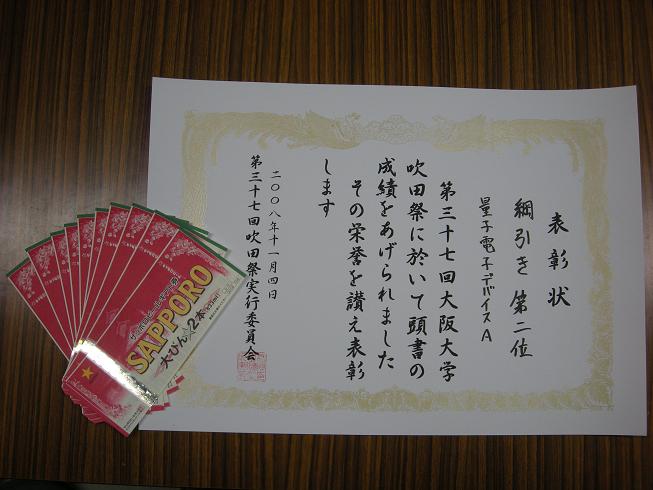 表彰状
綱引き 第二位
量子電子デバイスA
第三十七回大阪大学
吹田祭に於いて頭書の
成績をあげられました
その栄誉を讃え表彰
します
二〇〇八年十一月四日
第三十七回吹田祭実行委員会
SAPPORO
大びん2本